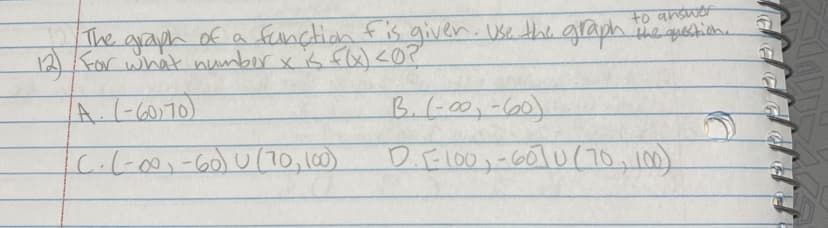 The graph of a function f is given. Use the graph to answer the question.
12) For what number x is f(x) <0?
A. (-60,70) B. (-∞, -60)
C. (-∞, -60) U (70, 100) D. [-100, -60] U (70, 100)